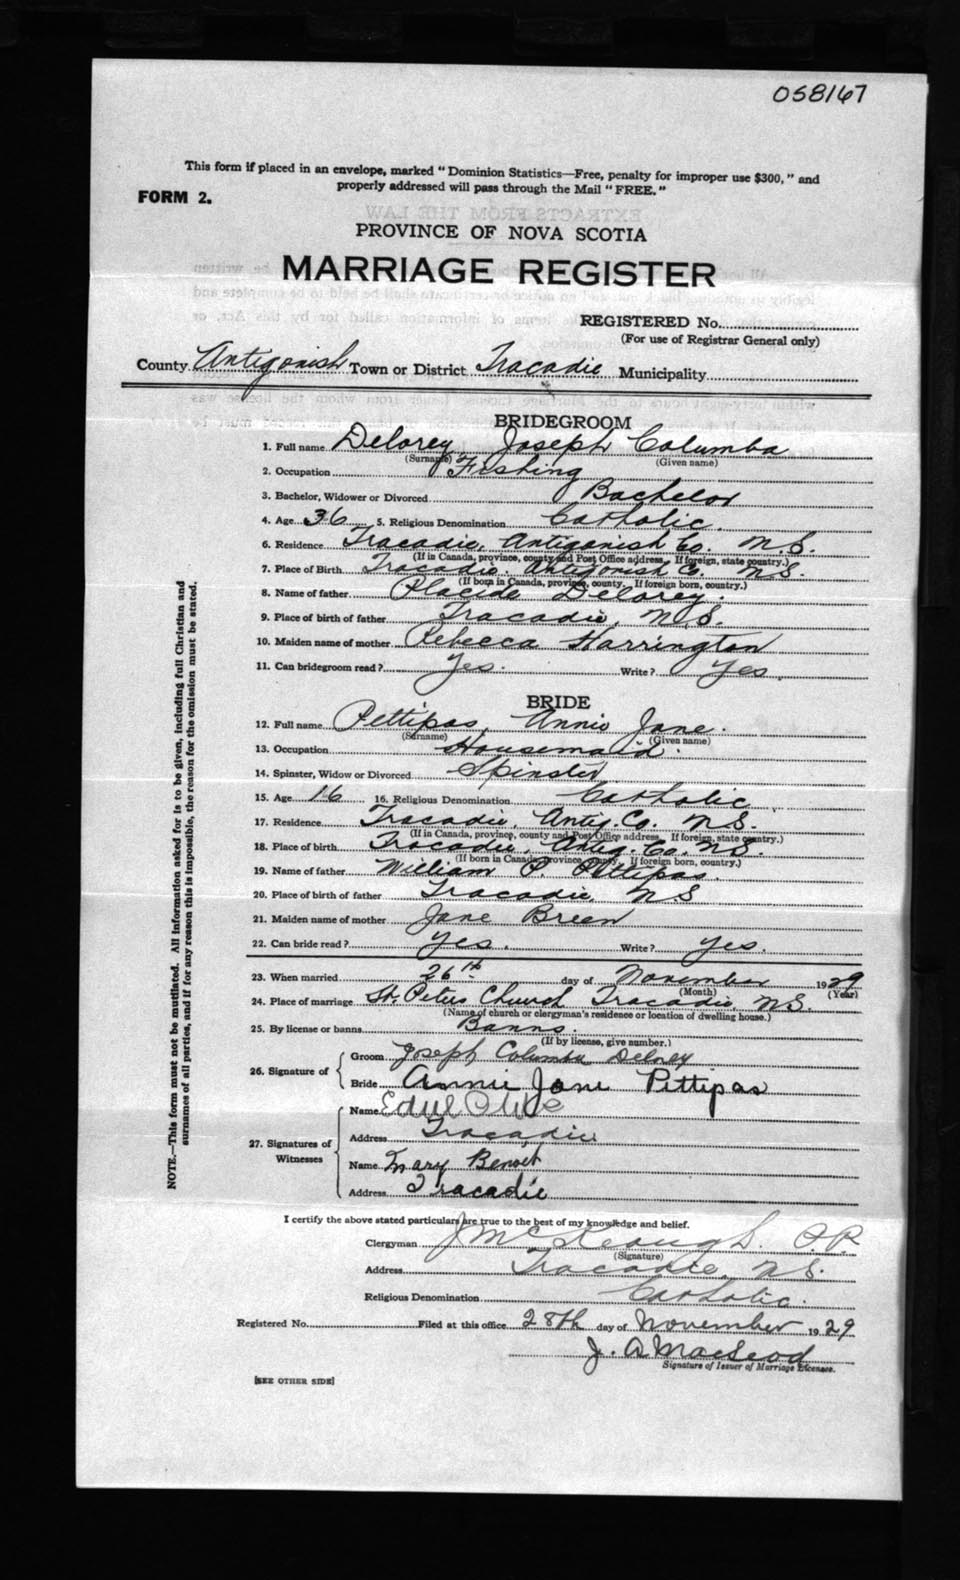 058167
This form if placed in an envelope, marked "Dominion Statistics—Free, penalty for improper use $300," and
properly addressed will pass through the Mail "FREE."
FORM 2.
PROVINCE OF NOVA SCOTIA
MARRIAGE REGISTER
REGISTERED No.
(For use of Registrar General only)
County Antigonish Town or District Tracadie Municipality
BRIDEGROOM
1. Full name Delorey Joseph Columba
(Surname) (Given name)
2. Occupation Fishing
3. Bachelor, Widower or Divorced Bachelor
4. Age 36 5. Religious Denomination Catholic.
6. Residence Tracadie, Antigonish Co. N.S.
(If in Canada, province, county and Post Office address, If foreign, state country.)
7. Place of Birth Tracadie. Antigonish Co. N.S.
(If born in Canada, province, county. If foreign born, country.)
8. Name of father Placide Delorey.
9. Place of birth of father Tracadie, N.S.
10. Maiden name of mother Rebecca Harrington
11. Can bridegroom read? Yes. Write? Yes
BRIDE
12. Full name Pettipas, Annie Jane.
(Surname) (Given name)
13. Occupation Housemaid.
14. Spinster, Widow or Divorced Spinster
15. Age 16 16. Religious Denomination Catholic
17. Residence Tracadie, Antig. Co. N.S.
(If in Canada, province, county and Post Office address. If foreign, state country.)
18. Place of birth Tracadie, Antig. Co. N.S.
(If born in Canada, province, county. If foreign born, country.)
19. Name of father William P. Pettipas.
20. Place of birth of father Tracadie, N.S
21. Maiden name of mother Jane Breen
22. Can bride read? Yes. Write? Yes.
23. When married 26th day of November 1929
(Month) (Year)
24. Place of marriage St. Peters Church Tracadie, N.S.
(Name of church or clergyman's residence or location of dwelling house.)
25. By license or banns Banns.
(If by license, give number.)
26. Signature of
Groom Joseph Columba Delorey
Bride Annie Jane Pettipas
27. Signatures of Witnesses
Name
Address Tracadie
Name Mary Benoit
Address Tracadie
I certify the above stated particulars are true to the best of my knowledge and belief.
Clergyman J McKeough. P.P.
(Signature)
Address Tracadie, N.S.
Religious Denomination Catholic.
Registered No. Filed at this office 28th day of November 1929
J. A MacLeod
Signature of Issuer of Marriage Licenses.
[SEE OTHER SIDE]
NOTE.—This form must not be mutilated. All information asked for is to be given, including full Christian and
surnames of all parties, and if for any reason this is impossible, the reason for the omission must be stated.